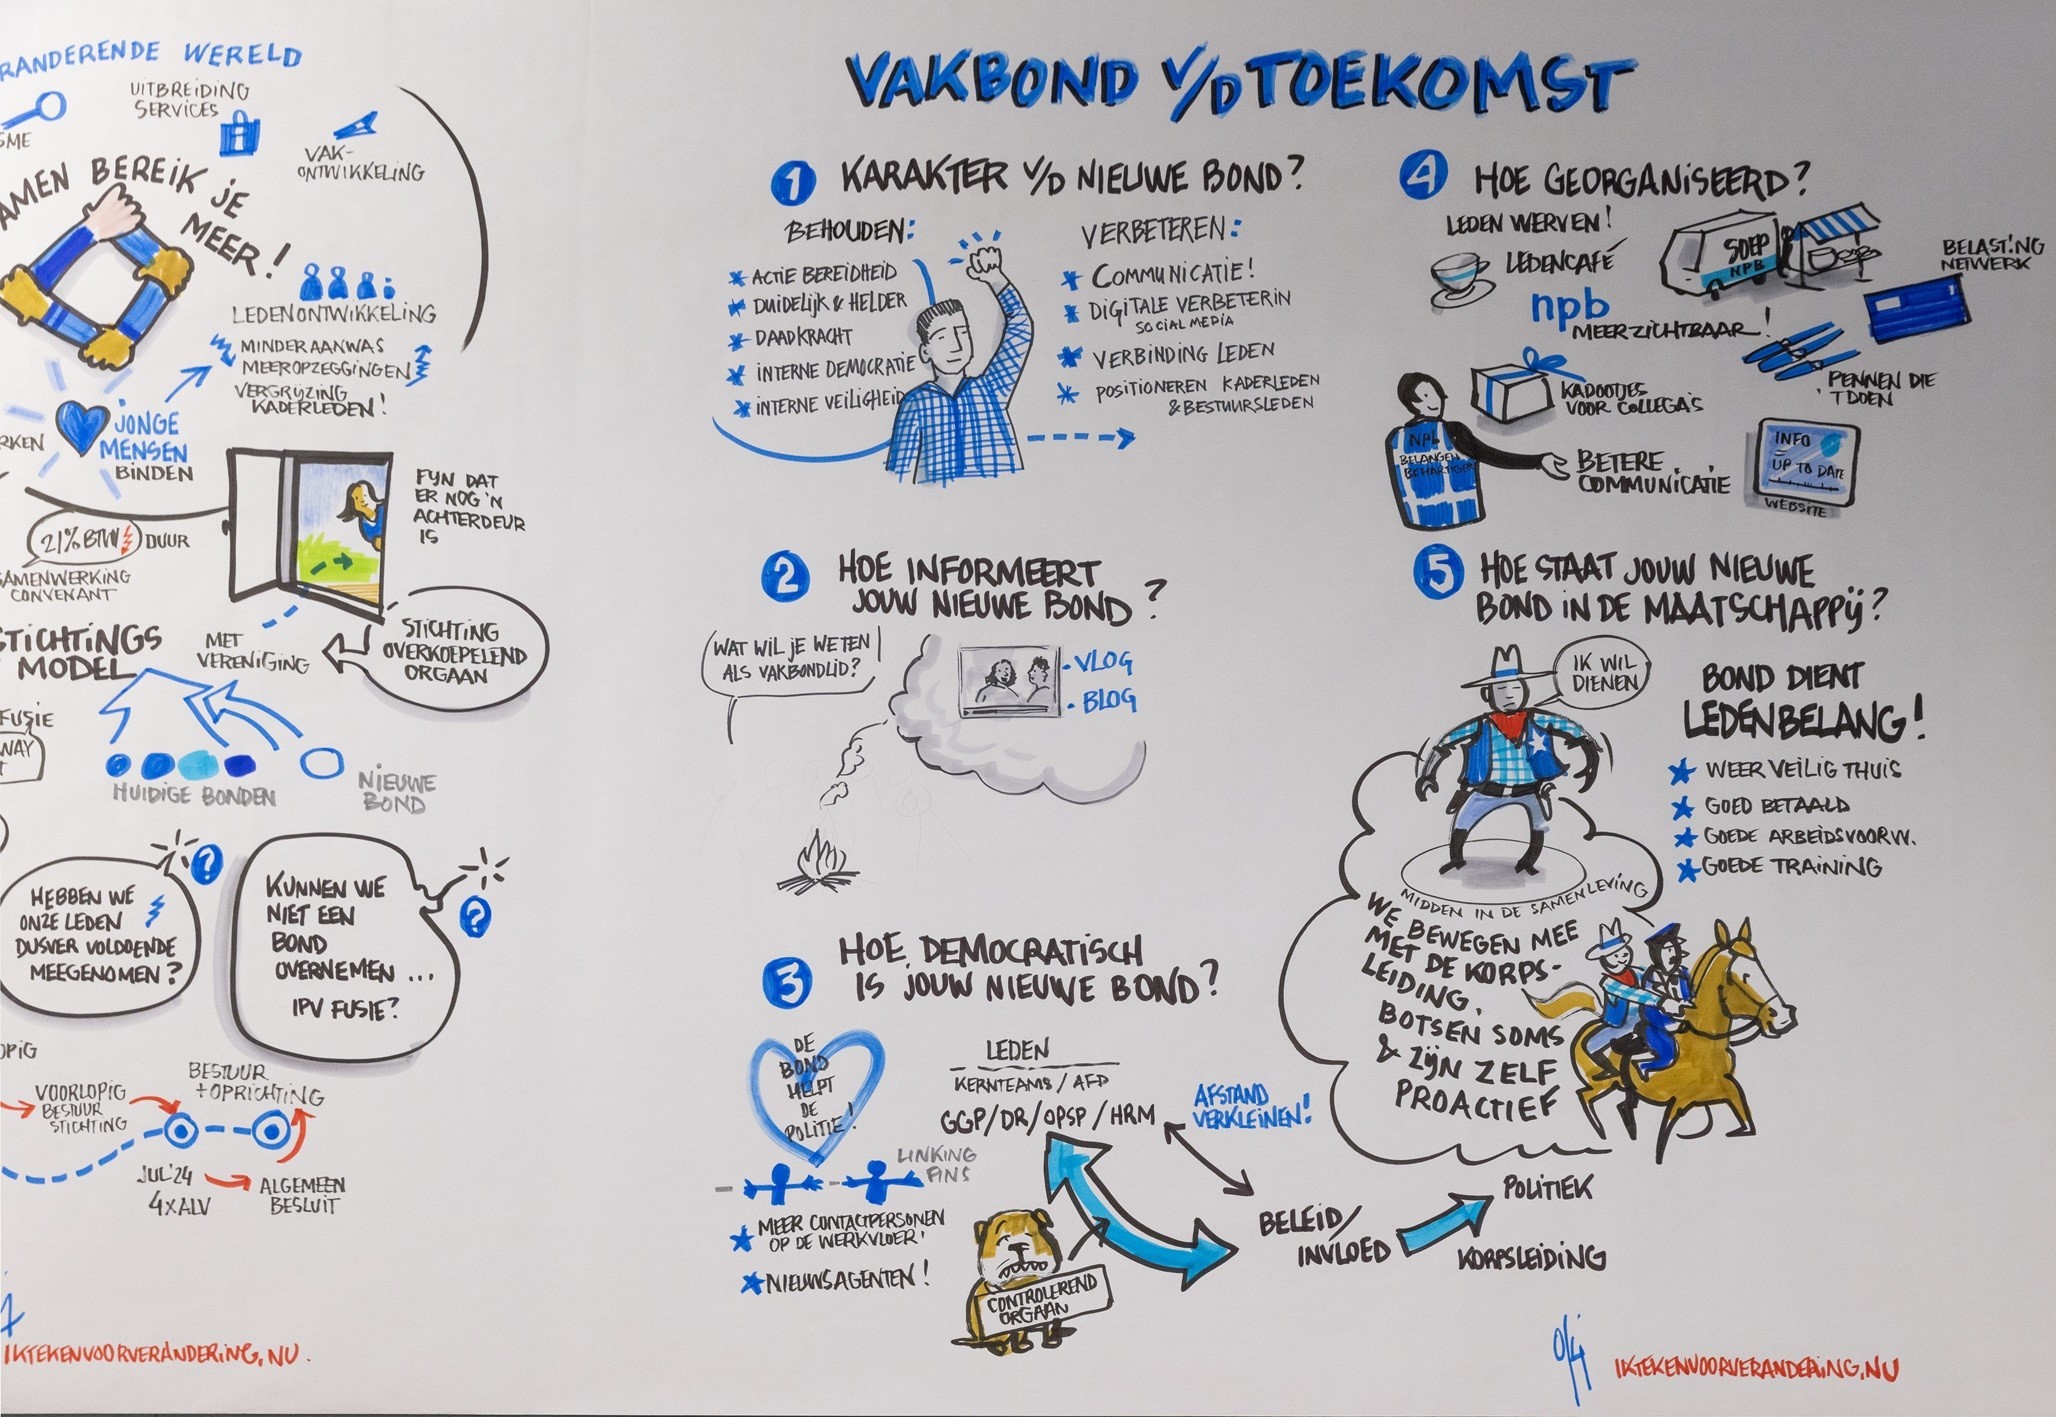 RANDERENDE WERELD
UITBREIDING
SERVICES
SME
VAK-
ONTWIKKELING
AMEN BEREIK JE
MEER!
LEDENONTWIKKELING
MINDER AANWAS
MEER OPZEGGINGEN
VERGRIJZING
KADERLEDEN!
RKEN
JONGE
MENSEN
BINDEN
FIJN DAT
ER NOG 'N
ACHTERDEUR
IS
21% BTW
DUUR
SAMENWERKING
CONVENANT
STICHTINGS
MODEL
MET
VERENIGING
STICHTING
OVERKOEPELEND
ORGAAN
FUSIE
WAY
HUIDIGE BONDEN
NIEUWE
BOND
HEBBEN WE
ONZE LEDEN
DUSVER VOLDOENDE
MEEGENOMEN?
?
KUNNEN WE
NIET EEN
BOND
OVERNEMEN...
IPV FUSIE?
?
OPIG
VOORLOPIG
BESTUUR
STICHTING
BESTUUR
+ OPRICHTING
JUL'24
4XALV
ALGEMEEN
BESLUIT
IKTEKENVOORVERANDERING.NU.
VAKBOND V/D TOEKOMST
1 KARAKTER V/D NIEUWE BOND?
BEHOUDEN:
ACTIE BEREIDHEID
DUIDELIJK & HELDER
DAADKRACHT
INTERNE DEMOCRATIE
INTERNE VEILIGHEID
VERBETEREN:
COMMUNICATIE!
DIGITALE VERBETERIN
SOCIAL MEDIA
VERBINDING LEDEN
POSITIONEREN KADERLEDEN
& BESTUURSLEDEN
2 HOE INFORMEERT
JOUW NIEUWE BOND?
WAT WIL JE WETEN
ALS VAKBONDLID?
- VLOG
- BLOG
3 HOE DEMOCRATISCH
IS JOUW NIEUWE BOND?
DE
BOND
HELPT
DE
POLITIE!
LINKING
PINS
MEER CONTACTPERSONEN
OP DE WERKVLOER!
NIEUWSAGENTEN!
LEDEN
KERNTEAMS / AFD
GGP/DR/OPSP/HRM
AFSTAND
VERKLEINEN!
CONTROLEREND
ORGAAN
BELEID/
INVLOED
POLITIEK
KORPSLEIDING
4 HOE GEORGANISEERD?
LEDEN WERVEN!
LEDENCAFÉ
SOEP
NPB
BELASTING
NETWERK
npb
MEER ZICHTBAAR!
PENNEN DIE
'T DOEN
KADOOTJES
VOOR COLLEGA'S
NPB
BELANGEN
BEHARTIGER
BETERE
COMMUNICATIE
INFO
UP TO DATE
WEBSITE
5 HOE STAAT JOUW NIEUWE
BOND IN DE MAATSCHAPPIJ?
IK WIL
DIENEN
BOND DIENT
LEDENBELANG!
WEER VEILIG THUIS
GOED BETAALD
GOEDE ARBEIDSVOORW.
GOEDE TRAINING
MIDDEN IN DE SAMENLEVING
WE BEWEGEN MEE
MET DE KORPS-
LEIDING,
BOTSEN SOMS
& ZIJN ZELF
PROACTIEF
IKTEKENVOORVERANDERING.NU